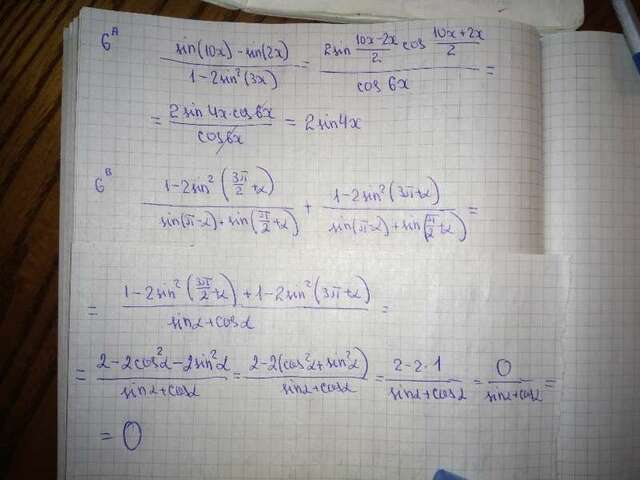 6ᴬ (sin(10x) - sin(2x))/(1-2sin²(3x)) = (2sin (10x-2x)/2 cos (10x+2x)/2)/(cos 6x) =
= (2sin 4x·cos 6x)/(cos 6x) = 2sin4x
6ᴮ (1-2sin²(3π/2+α))/(sin(π-α)+sin(π/2+α)) + (1-2sin²(3π+α))/(sin(π-α)+sin(π/2+α)) =
= (1-2sin²(3π/2+α)+1-2sin²(3π+α))/(sinα+cosα) =
= (2-2cos²α-2sin²α)/(sinα+cosα) = (2-2(cos²α+sin²α))/(sinα+cosα) = (2-2·1)/(sinα+cosα) = 0/(sinα+cosα) =
= 0